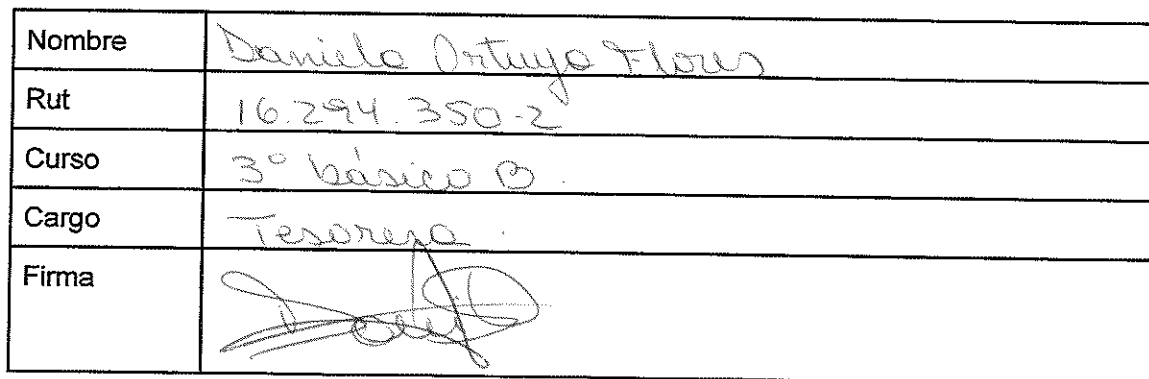 Nombre Daniela Ortuyo Flores
Rut 16.294.350-2
Curso 3° básico B.
Cargo Tesorera.
Firma